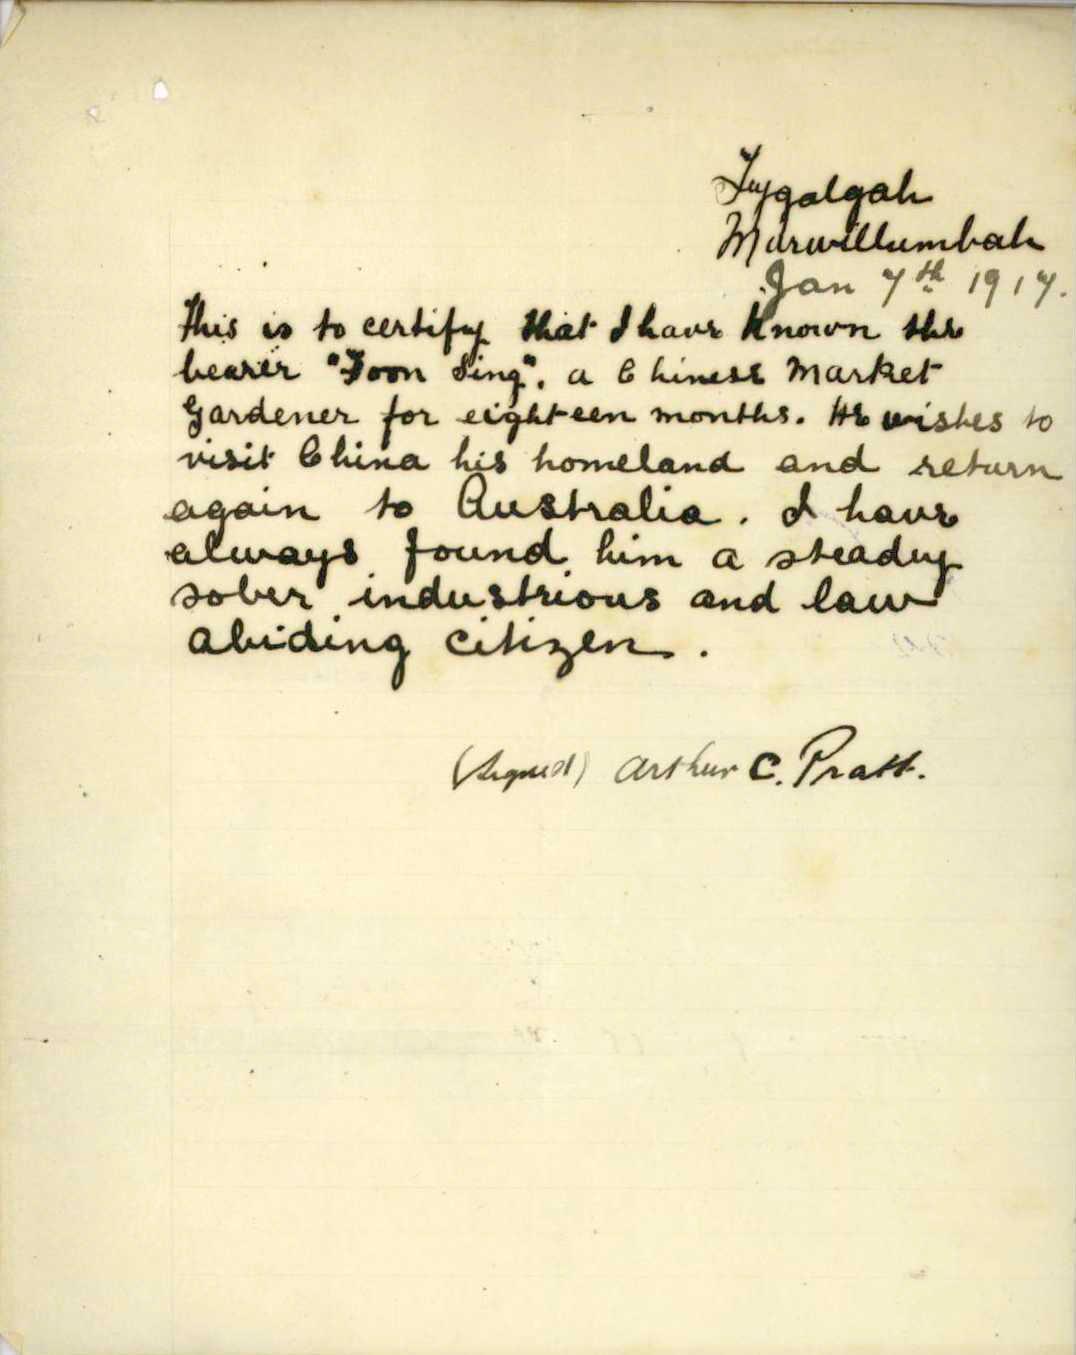 Tygalgah
Murwillumbah
Jan 7th 1917.
This is to certify that I have known the
bearer "Foon Sing", a Chinese Market
Gardener for eighteen months. He wishes to
visit China his homeland and return
again to Australia. I have
always found him a steady
sober industrious and law
abiding citizen.
(Signed) Arthur C. Pratt.